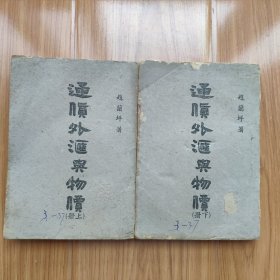 趙蘭坪著
通貨外滙與物價
(上冊)
3-37
趙蘭坪著
通貨外滙與物價
(下冊)
3-37